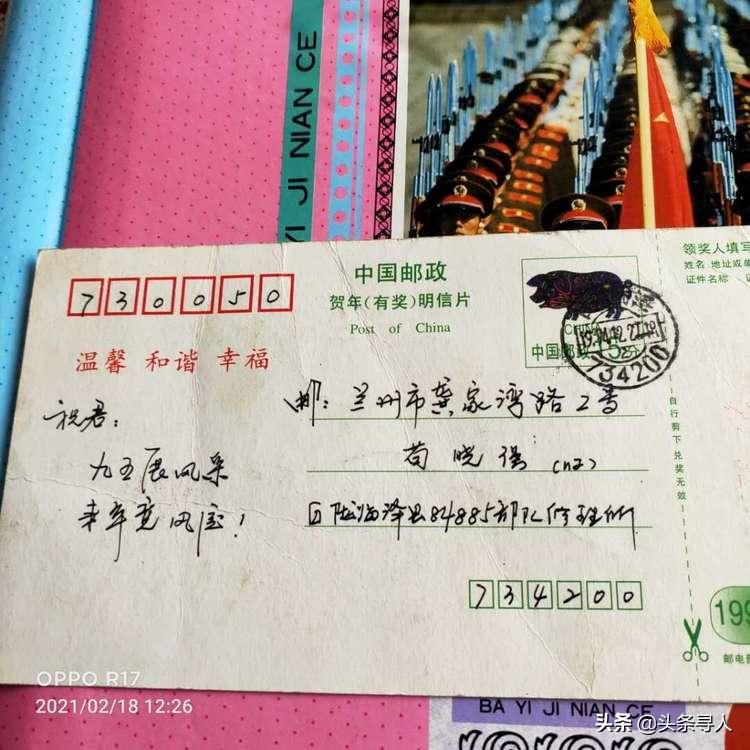 YI JI NIAN CE
730050
中国邮政
贺年(有奖)明信片
Post of China
温馨 和谐 幸福
CHINA
中国邮政 15分
734200
领奖人填写
姓名 地址或单
证件名称
自行剪下 兑奖无效
祝君:
九五展风采
来年竞风流!
邮: 兰州市龚家湾路2号
苟晓
甘肃临泽县84885部队修理所
734200
199
邮电部
OPPO R17
2021/02/18 12:26
BA YI JI NIAN CE
头条 @头条寻人